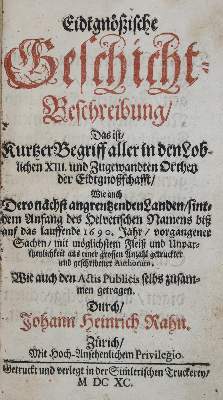 Eidtgnößische
Geschicht-
Beschreibung/
Das ist/
Kurtzer Begriff aller in den Lob-
lichen XIII. und Zugewandten Orthen
der Eidtgnoßschafft/
Wie auch
Dero nächst angrentzenden Landen/ sint-
dem Anfang des Helvetischen Namens biß
auf das lauffende 1690. Jahr/ vorgangener
Sachen/ mit möglichstem Fleiß und Unpar-
theylichkeit aus einer grossen Anzahl getruckter
und geschribener Authorum,
Wie auch den Actis Publicis selbs zusam-
men getragen.
Durch/
Johann Heinrich Rahn.
Zürich/
Mit Hoch-Ansehenlichem Privilegio.
Getruckt und verlegt in der Simlerischen Truckerey/
M DC XC.